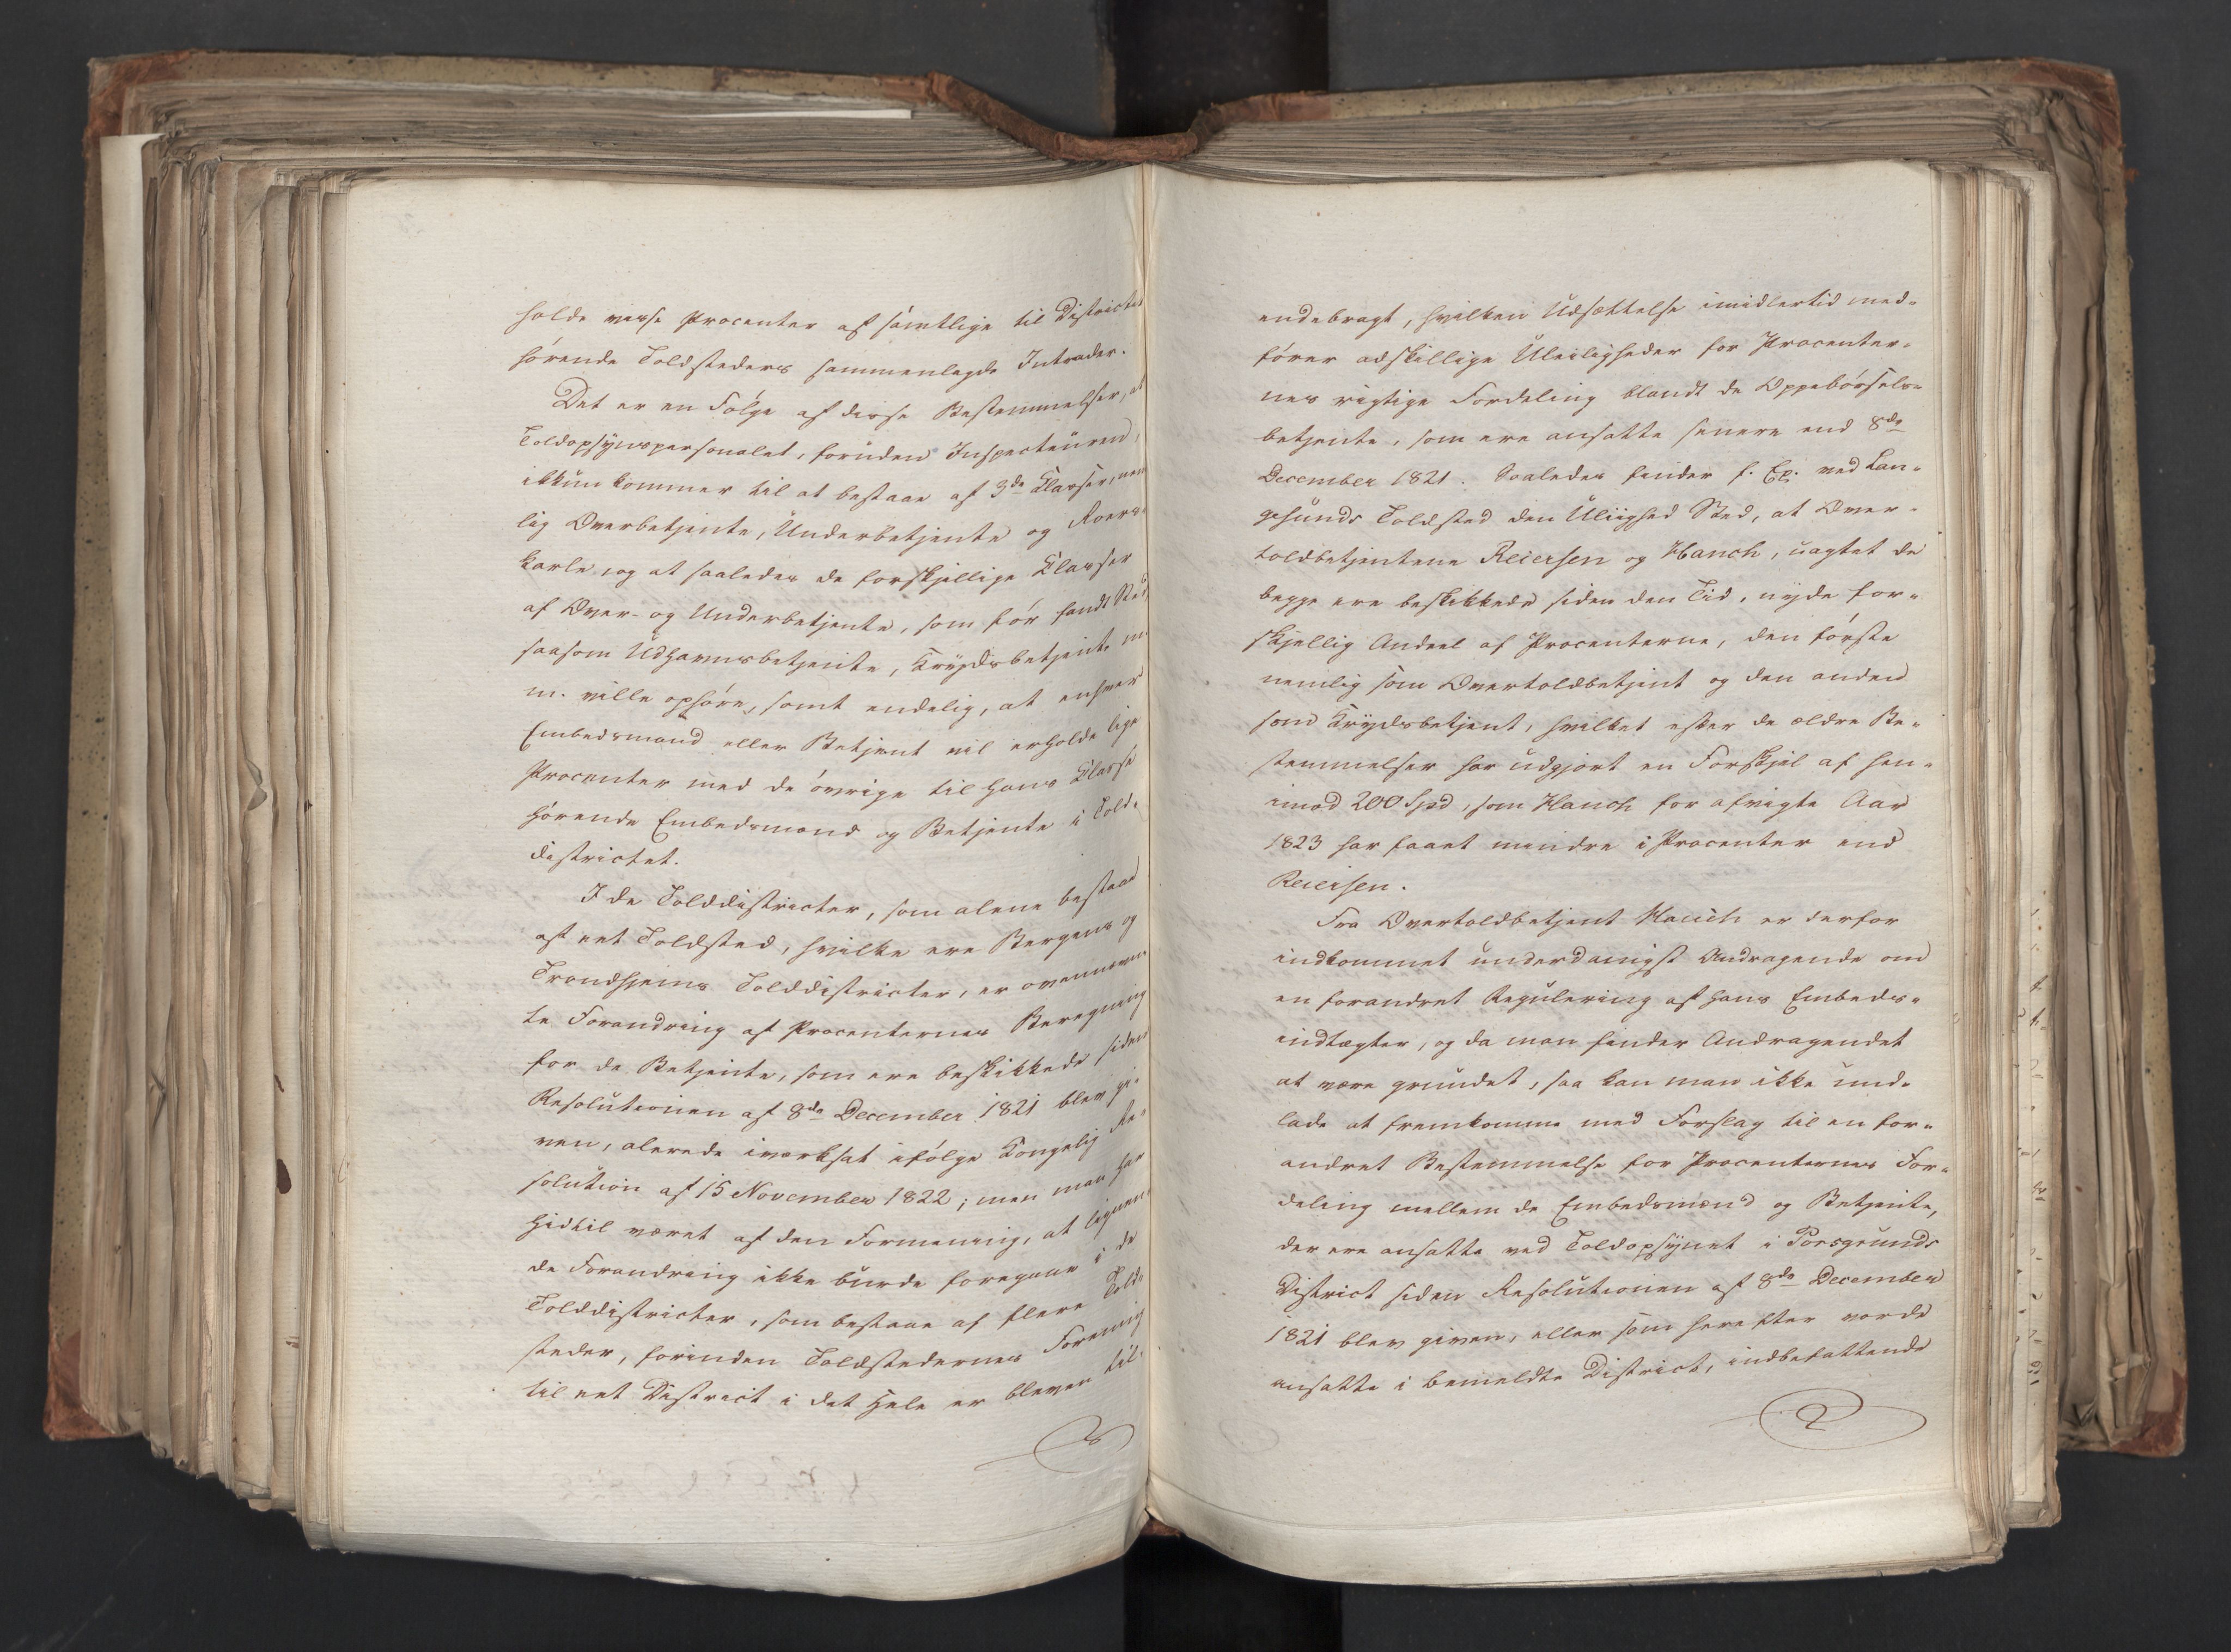 holde visse Procenter af samtlige til Districtet
hørende Toldsteders sammenlagde Intrader.
Det er en Følge af disse Bestemmelser, at
Toldopsynspersonalet, foruden Inspecteuren,
ikkun kommer til at bestaae af 3de Classer, nem
lig Overbetjente, Underbetjente og Roers-
karle, og at saaledes de forskjellige Classer
af Over- og Underbetjente, som før fandt Sted,
saasom Udhavnsbetjente, Krydsbetjente m.
m. ville ophøre, samt endelig, at enhver
Embedsmand eller Betjent vil erholde lige
Procenter med de øvrige til hans Classe
hørende Embedsmænd og Betjente i Told-
districtet.
I de Tolddistricter, som alene bestaae
af eet Toldsted, hvilke ere Bergens og
Trondhjems Tolddistricter, er ovennævn-
te Forandring af Procenternes Beregning
for de Betjente, som ere beskikkede siden
Resolutionen af 8de December 1821 blev gi-
ven, alerede iværksat ifølge Kongelig Re-
solution af 15 November 1822; men man har
hidtil været af den Formening, at lignen-
de Forandring ikke burde foregaae i de
Tolddistricter, som bestaae af flere Told-
steder, forinden Toldstedernes Forening
til eet District i det Hele er bleven til-
endebragt, hvilken Udsættelse imidlertid med-
fører adskillige Uleiligheder for Procenter-
nes rigtige Fordeling blandt de Oppebørsels-
betjente, som ere ansatte senere end 8de
December 1821. Saaledes finder f. Ex. ved Lan-
gesunds Toldsted den Uliighed Sted, at Over-
toldbetjentene Reiersen og Hauch, uagtet de
begge ere beskikkede siden den Tid, nyde for-
skjellig Andeel af Procenterne, den første
nemlig som Overtoldbetjent og den anden
som Krydsbetjent, hvilket efter de ældre Be-
stemmelser har udgjort en Forskjel af hen-
imod 200 Spd, som Hauch for afvigte Aar
1823 har faaet mindre i Procenter end
Reiersen.
Fra Overtoldbetjent Hauch er derfor
indkommet underdanigst Andragende om
en forandret Regulering af hans Embeds-
indtægter, og da man finder Andragendet
at være grundet, saa kan man ikke und-
lade at fremkomme med Forslag til en for-
andret Bestemmelse for Procenternes For-
deling mellem de Embedsmænd og Betjente,
der ere ansatte ved Toldopsynet i Porsgrunds
District siden Resolutionen af 8de December
1821 blev given, eller som herefter vorde
ansatte i bemeldte District, indbefattende